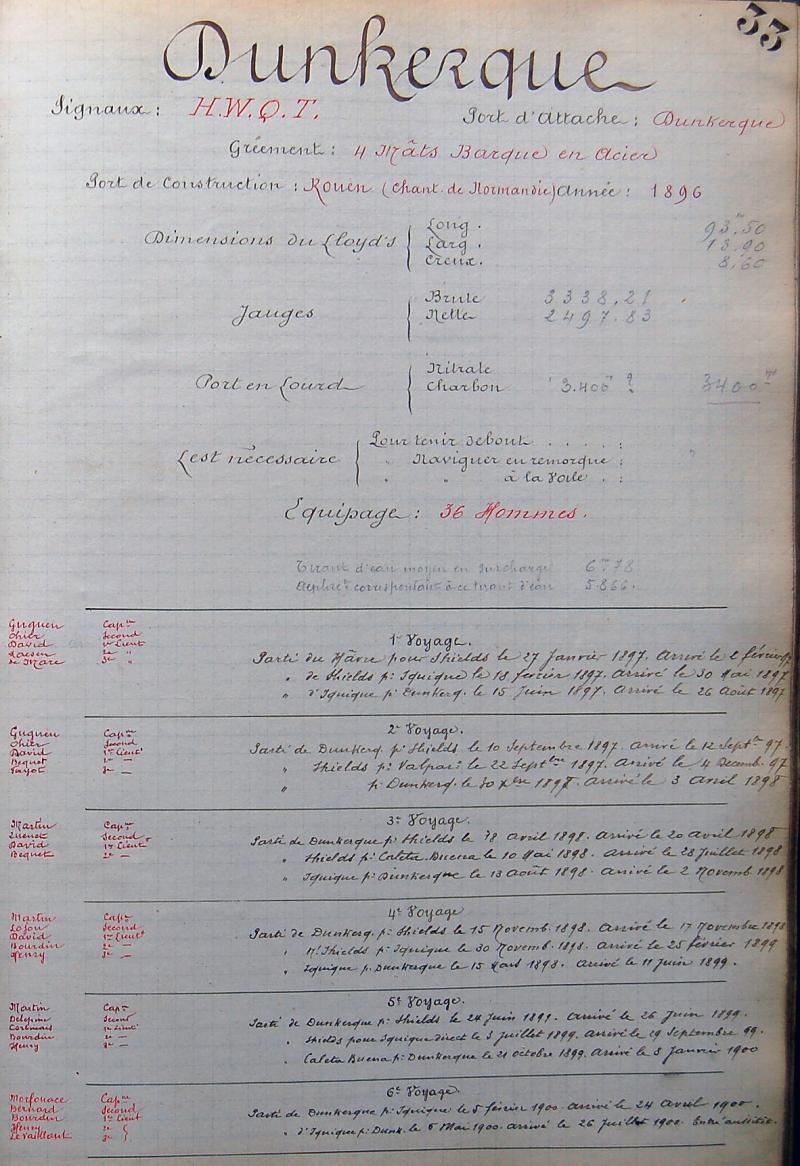 33
Dunkerque
Signaux : H.W.Q.T. Port d'Attache : Dunkerque
Gréement : 4 Mâts Barque en Acier
Port de Construction : Rouen (Chant. de Normandie) Année : 1896
Dimensions du Lloyd's
Long. 93.50
Larg. 13.90
Creux. 8.60
Jauges
Brute 3338.21
Nette 2497.83
Port en Lourd
Nitrate
Charbon 3.400 ? 3400
Lest nécessaire
Pour tenir debout . . . . :
" Naviguer en remorque :
" " à la Voile . :
Equipage : 36 Hommes.
Tirant d'eau moyen en surcharge 6m78
Deplact correspondant à ce tirant d'eau 5.866.
Guguen Capne
Ohier Second
David 1er Lieut
2e "
de Mare 3e "
1er Voyage.
Parti du Hâvre pour Shields le 27 Janvier 1897. Arrivé le 2 février 97
" de Shields pr Iquique le 18 fevrier 1897. Arrivé le 30 Mai 1897
" d'Iquique pr Dunkerq. le 15 Juin 1897. Arrivé le 26 Août 1897
Guguen Capne
Ohier Second
David 1er Lieut
Bequet 2e —
Payot 3e —
2e Voyage.
Parti de Dunkerq. pr Shields le 10 Septembre 1897. Arrivé le 12 Septbre 97.
" Shields pr Valpar. le 22 Septbre 1897. Arrivé le 4 Decemb. 97
" pr Dunkerq. le 30 Xbre 1897. Arrivé le 3 Avril 1898
Martin Capne
Second
David 1er Lieut
Bequet 2e —
3e Voyage.
Parti de Dunkerque pr Shields le 18 Avril 1898. Arrivé le 20 Avril 1898
" Shields pr Caleta Buena le 10 Mai 1898. Arrivé le 28 Juillet 1898
" Iquique pr Dunkerque le 13 Août 1898. Arrivé le 2 Novemb 1898
Martin Capne
Second
David 1er Lieut
Bourdin 2e —
Henry 3e —
4e Voyage
Parti de Dunkerque pr Shields le 15 Novemb. 1898. Arrivé le 17 Novembre 1898
" Nth Shields pr Iquique le 30 Novemb. 1898. Arrivé le 25 février 1899
" Iquique pr Dunkerque le 15 Mars 1898. Arrivé le 11 Juin 1899.
Martin Capne
Delépine Second
1er Lieut
Bourdin 2e —
Henry 3e —
5e Voyage.
Parti de Dunkerque pr Shields le 24 Juin 1899. Arrivé le 26 Juin 1899.
" Shields pour Iquique direct le 3 Juillet 1899. Arrivé le 29 Septembre 99.
" Caleta Buena pr Dunkerque le 21 octobre 1899. Arrivé le 8 Janvier 1900
Morfouace Capne
Bernard Second
Bourdin 1er Lieut
Henry 2e
Levaillant 3e
6e Voyage.
Parti de Dunkerque pr Iquique le 5 février 1900. Arrivé le 24 Avril 1900.
" d'Iquique pr Dunk. le 6 Mai 1900. Arrivé le 26 Juillet 1900.